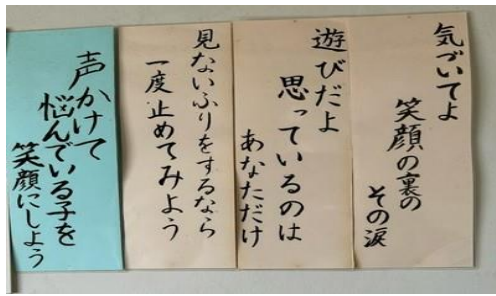 気づいてよ
笑顔の裏の
その涙
遊びだよ
思っているのは
あなただけ
見ないふりをするなら
一度止めてみよう
声かけて
悩んでいる子を
笑顔にしよう